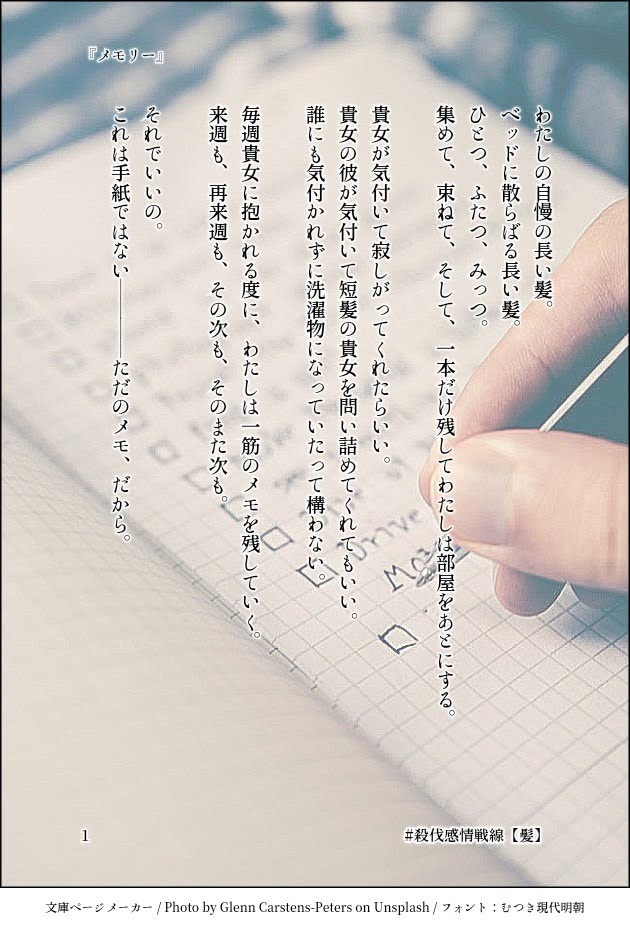 『メモリー』
わたしの自慢の長い髪。
ベッドに散らばる長い髪。
ひとつ、ふたつ、みっつ。
集めて、束ねて、そして、一本だけ残してわたしは部屋をあとにする。
貴女が気付いて寂しがってくれたらいい。
貴女の彼が気付いて短髪の貴女を問い詰めてくれてもいい。
誰にも気付かれずに洗濯物になっていたって構わない。
毎週貴女に抱かれる度に、わたしは一筋のメモを残していく。
来週も、再来週も、その次も、そのまた次も。
それでいいの。
これは手紙ではない――――ただのメモ、だから。
Drive
1
#殺伐感情戦線【髪】
文庫ページメーカー / Photo by Glenn Carstens-Peters on Unsplash / フォント：むつき現代明朝